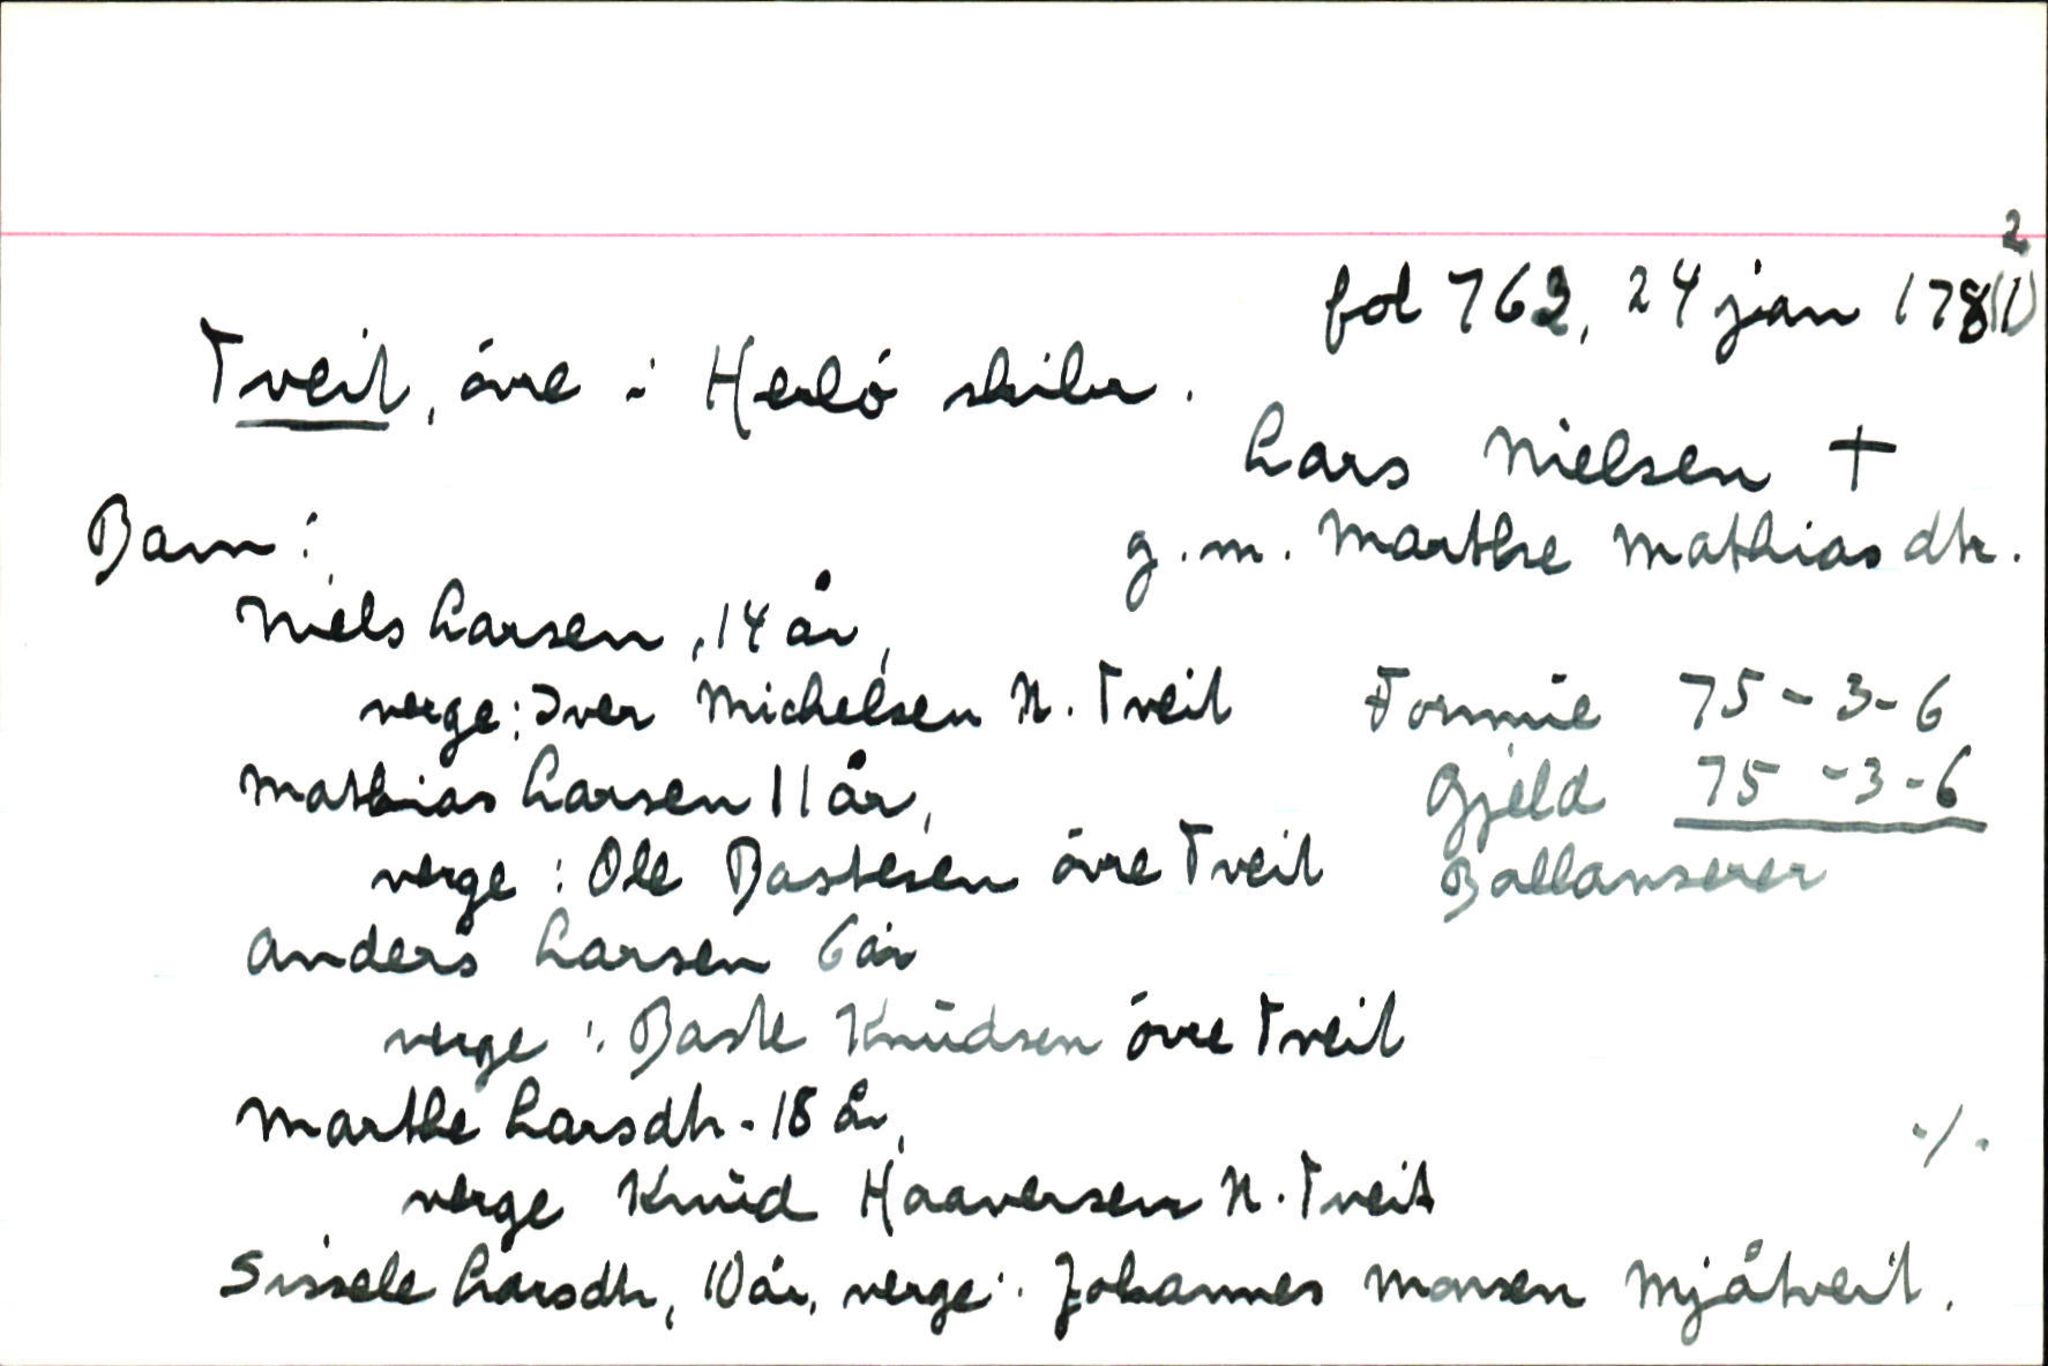 2
fol 762, 24 jan 178(1)
Tveit, övre i Herló skibr.
Lars Nielsen †
Barn:
g.m. Marthe Mathiasdtr.
Niels Larsen, 14 år,
verge: Iver Michelsen N. Tveit
Formue 75-3-6
Mathias Larsen 11 år,
Gjeld 75-3-6
verge: Ole Bastesen övre Tveit
Ballanserer
Anders Larsen 6 år
verge: Baste Knudsen övre Tveit
Marthe Larsdtr. 18 år,
-/-
verge Knud Haaversen N. Tveit
Sissele Larsdtr, 10 år, verge: Johannes Monsen Mjåtveit.